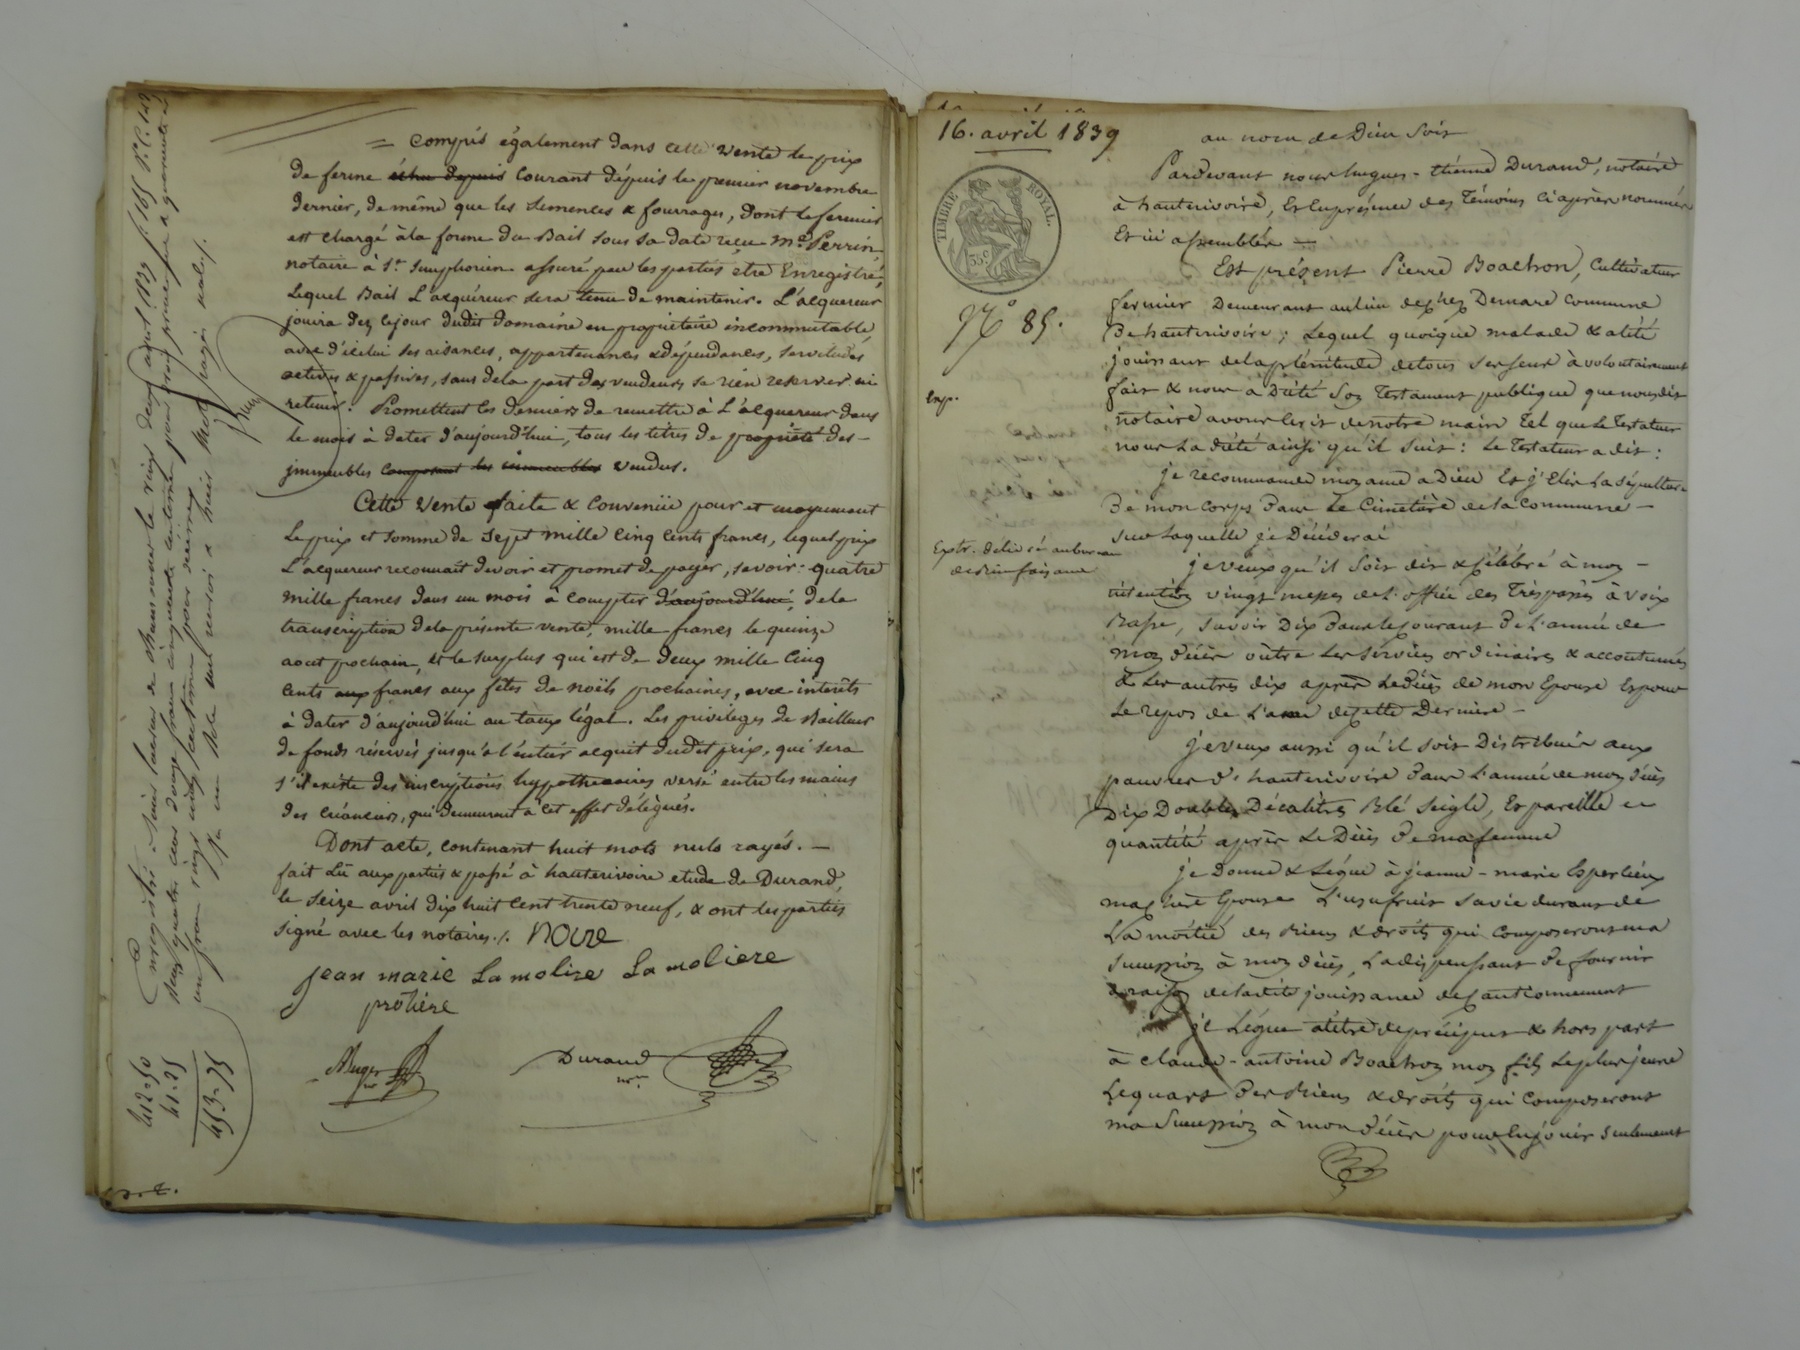 = Compris également dans cette vente le prix
de ferme échu depuis courant dépuis le premier novembre
dernier, de même que les semences & fourrages, dont le fermier
est chargé à la forme du Bail sous sa date reçu Me. Perrin,
notaire à St. Simphorien assuré par les parties être Enregistré,
Lequel Bail L'acquéreur sera tenu de maintenir. L'acquereur
jouira dez cejour dudit domaine en propriétaire incommutable,
avec d'icelui ses aisances, appartenances & dépendances, servitudes
actives & passives, sans dela part des vendeurs se rien reserver ni
retenir. Promettent les derniers de remettre à L'acquereur dans
le mois à dater d'aujourd'hui, tous les titres de propriété des-
jmmeubles composant les immeubles vendus.
Cette vente faite & convenüe pour et moyennant
Le prix et somme de sept mille cinq cents francs, lequel prix
L'acquereur reconnait devoir et promet de payer, savoir: quatre
mille francs dans un mois à compter d'aujourd'hui, dela
transcription dela présente vente, mille francs le quinze
aout prochain, et le surplus qui est de deux mille cinq
cents aux francs aux fêtes de noëls prochaines, avec interêts
à dater d'aujourd'hui au taux légal. Les privileges de Bailleur
de fonds réservés jusqu'à l'entier acquit dudit prix, qui sera
s'il existe des inscriptions hypothecaires versé entre les mains
des créanciers, qui demeurent à cet effet délégués.
Dont acte, contenant huit mots nuls rayés. —
fait Lû aux parties & passé à hauterivoire etude de Durand,
le seize avril dix huit cent trente neuf, & ont les parties
signé avec les notaires ./.
jean marie La molire La moliere
protiére
Durand
nre.
412-50
41-25
453-75
16. avril 1839
TIMBRE ROYAL.
35c
No 85.
Exp.
Extr. délivré au bureau
de Bienfaisance
au nom de Dieu Soit
Pardevant nous hugues-étienne Durand, notaire
à hauterivoire, Et En présence des Témoins ci après nommés
Et ici assemblés =
Est présent Pierre Boachon, Cultivateur
fermier Demeurant au lieu de chez Demare Commune
De hauterivoire; Lequel quoique malade & alité
jouissant dela plénitude de tous ses sens à volontairement
fait & nous à Dicté Son Testament publique que nousdit
notaire avons Ecrit denotre main Tel que Le Testateur
nous La dicté ainsi qu'il Suit: Le Testateur a dit:
je recommande mon ame a Dieu Et j'Elis La Sépulture
De mon Corps Dans Le Cimetière de la Commune —
sur Laquelle je Décéderai
je veux qu'il Soit dit & célébré à mon —
intention vingt messes de L'office des Trépassés à voix
Basse, savoir Dix Dans le Courant De L'année de
mon décès outre Les Services ordinaires & accoutumés
& Les autres dix après Le Décès de mon Epouse Et pour
Le repos de L'ame de cette Dernière —
je veux aussi qu'il Soit Distribué aux
pauvres d'hauterivoire Dans L'année de mon décès
Dix Doubles Décalitres Blé Seigle, Et pareille
quantité après Le Décès De ma femme
je Donne & Légue à jeanne-marie Esperlieux
ma chère Epouse L'usufruit Sa vie durant de
La moitié des Biens & droits qui Composeront ma
Succession à mon décès, La dispensant De fournir
à raison de ladite jouissance de Cautionnement
je Légue à titre de préciput & hors part
à Claude-antoine Boachon mon fils Le plus jeune
Le quart Des Biens & droits qui Composeront
ma Succession à mon décès pour En jouir Seulement